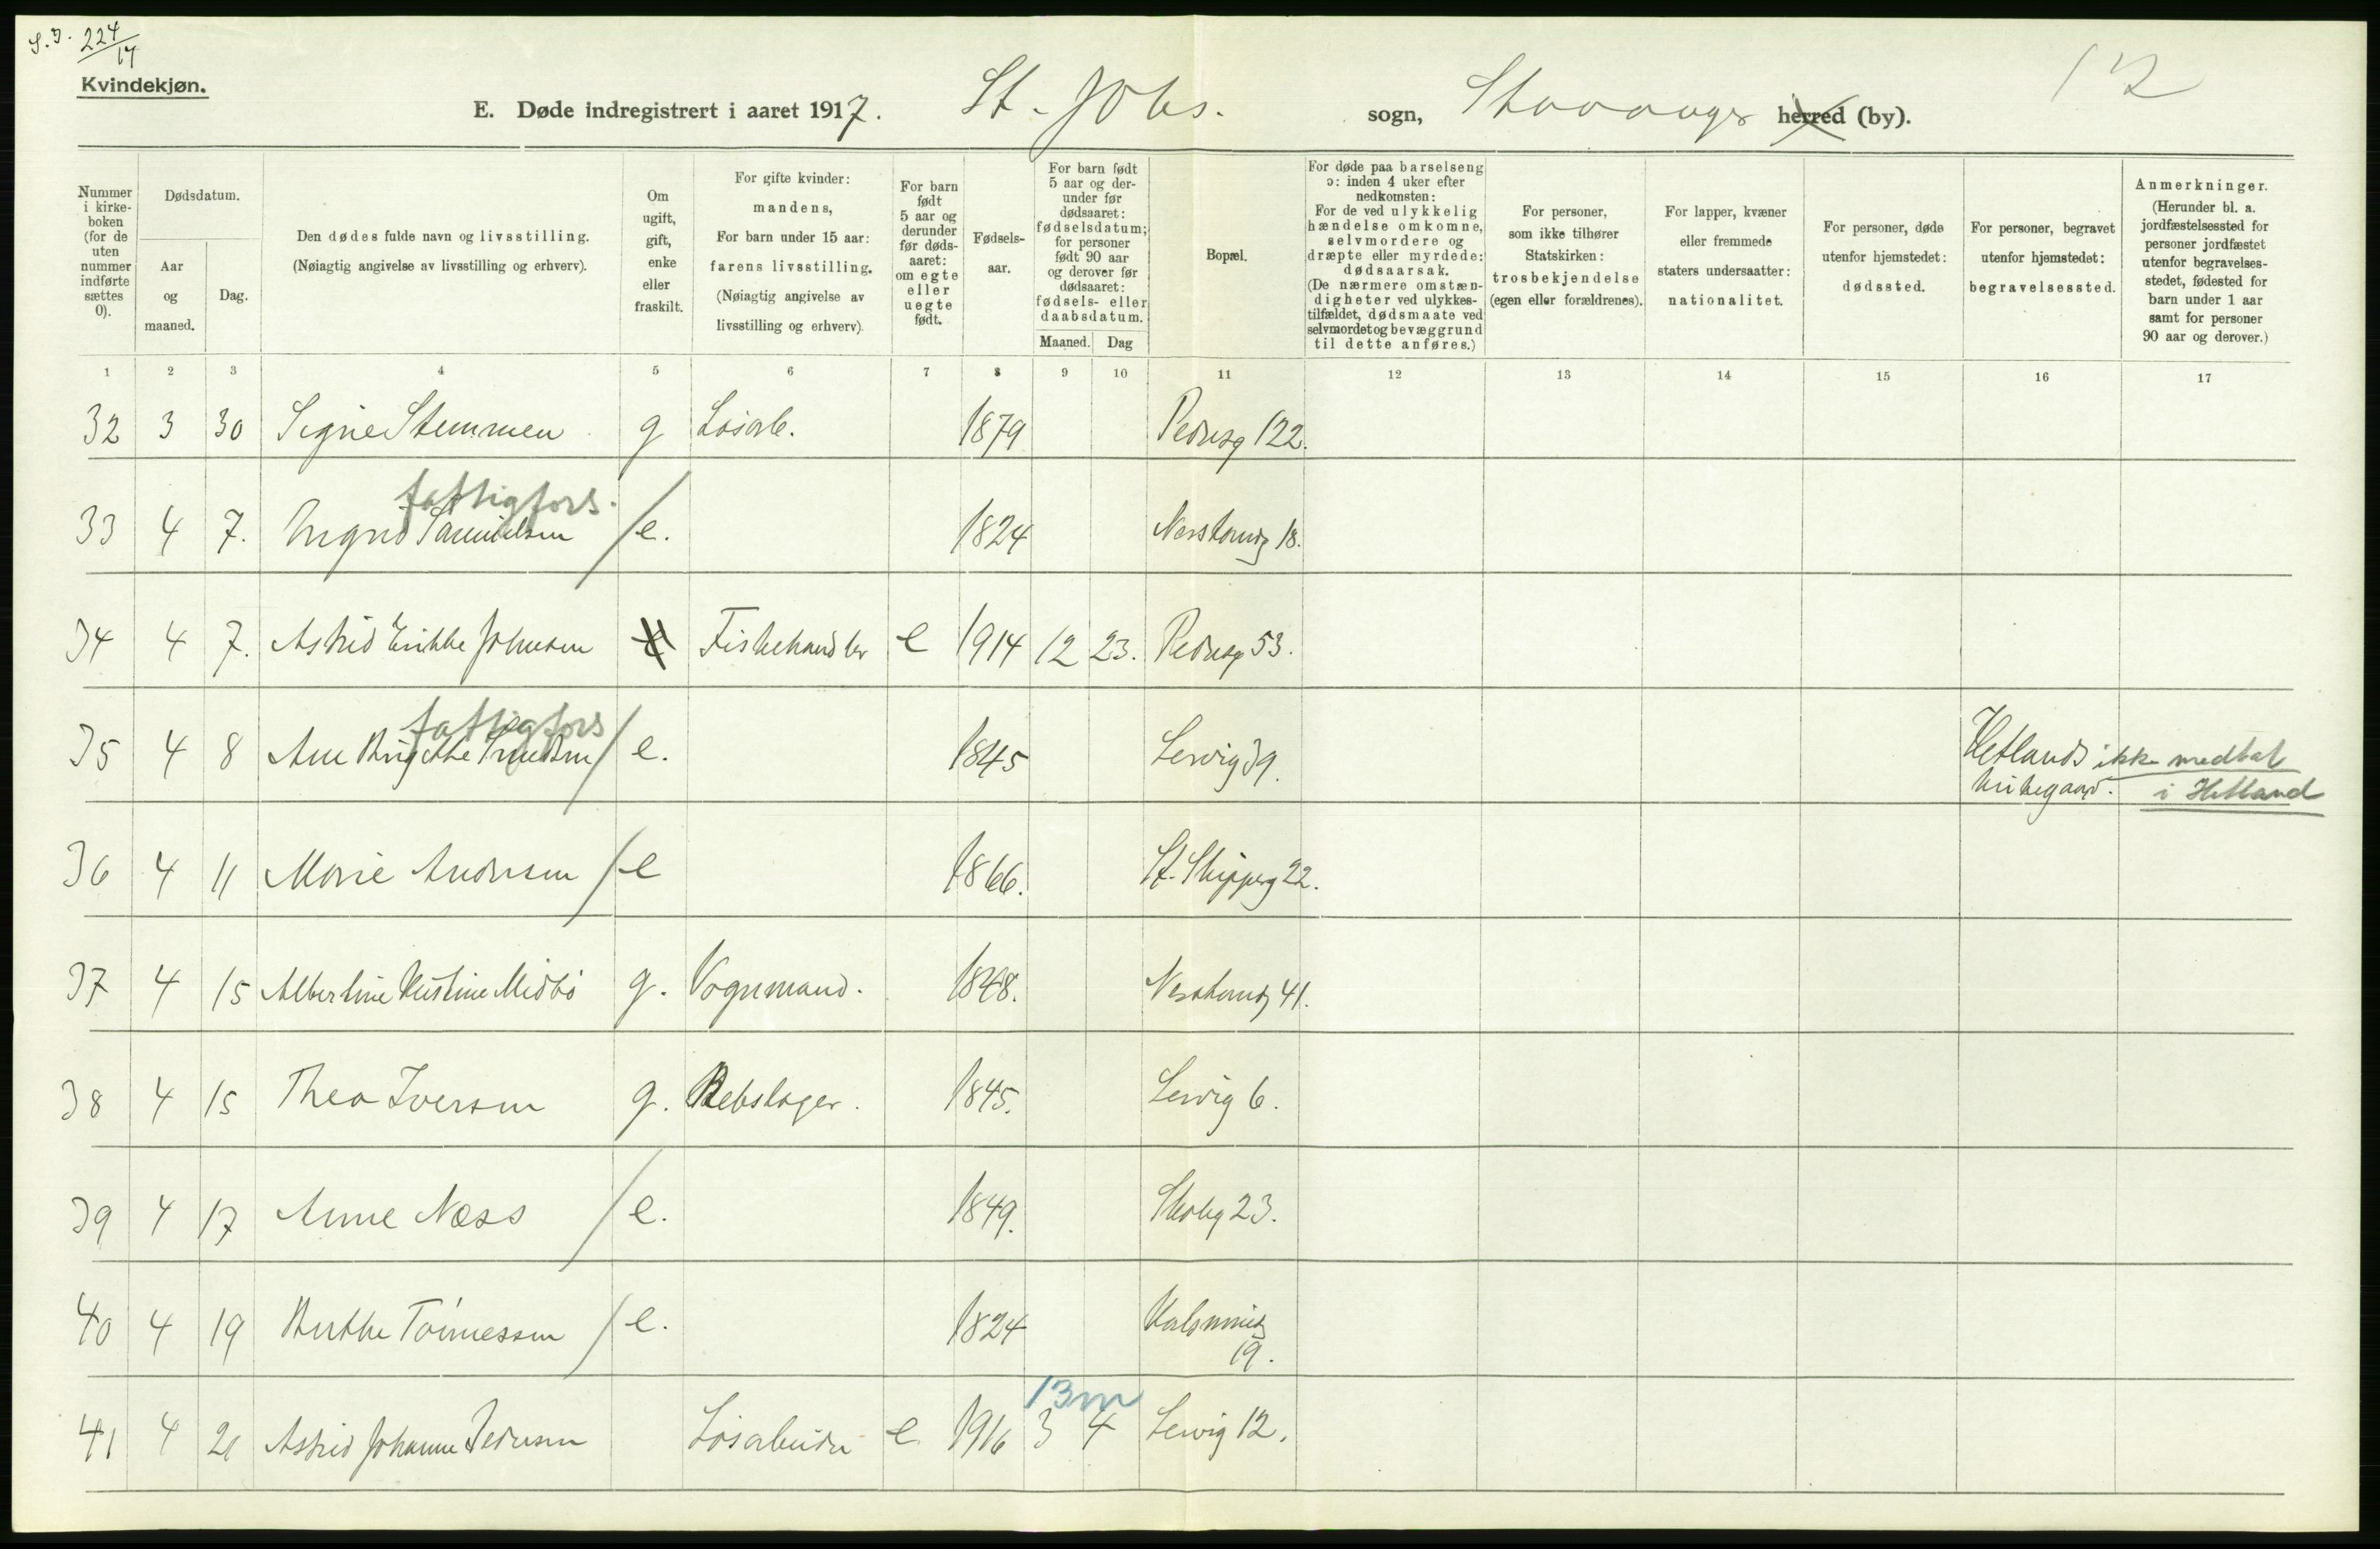 S.J. 224/17
Kvindekjøn.
E. Døde indregistrert i aaret 1917. St. Johs. sogn, Stavanger herred (by).
12
Nummer i kirkeboken (for de uten nummer indførte sættes 0).
Dødsdatum.
Aar og maaned.
Dag.
Den dødes fulde navn og livsstilling.
(Nøiagtig angivelse av livsstilling og erhverv).
Om ugift, gift, enke eller fraskilt.
For gifte kvinder: mandens,
For barn under 15 aar: farens livsstilling.
(Nøiagtig angivelse av livsstilling og erhverv).
For barn født 5 aar og derunder før dødsaaret: om egte eller uegte født.
Fødselsaar.
For barn født 5 aar og derunder før dødsaaret: fødselsdatum; for personer født 90 aar og derover før dødsaaret: fødsels- eller daabsdatum.
Maaned. Dag
Bopæl.
For døde paa barselseng ɔ: inden 4 uker efter nedkomsten:
For de ved ulykkelig hændelse omkomne, selvmordere og dræpte eller myrdede: dødsaarsak.
(De nærmere omstændigheter ved ulykkestilfældet, dødsmaate ved selvmordet og bevæggrund til dette anføres.)
For personer, som ikke tilhører Statskirken: trosbekjendelse (egen eller forældrenes).
For lapper, kvæner eller fremmede staters undersaatter: nationalitet.
For personer, døde utenfor hjemstedet: dødssted.
For personer, begravet utenfor hjemstedet: begravelsessted.
Anmerkninger.
(Herunder bl. a. jordfæstelsessted for personer jordfæstet utenfor begravelsesstedet, fødested for barn under 1 aar samt for personer 90 aar og derover.)
1 2 3 4 5 6 7 8 9 10 11 12 13 14 15 16 17
32 3 30 Signe Stemmen g Løsarb. 1879 Pedersg 122.
fattigfors.
33 4 7. Ingrid Samuelsen / e. 1824
18.
34 4 7. Astrid Erikke Johnsen Fiskehandler e 1914 12 23. Pedersg 53.
fattigfors
35 4 8 Ane / e. 1845 Lervig 39. Hetlands kirkegaard. ikke medtat
i Hetland
36 4 11 Marie Andersen / e 1866. St. Skipperg 22.
37 4 15 Albertine Kristine Midbö g. Vognmand. 1848. 41.
38 4 15 Thea Iversen g. Rebslager. 1845. Lervig 6.
39 4 17 Anne Næss / e. 1849. 23.
40 4 19 Berthe Tönnessen / e. 1824
19.
13 m
41 4 21 Astrid Johanne Pedersen Løsarbeider e 1916 3 4 Lervig 12.